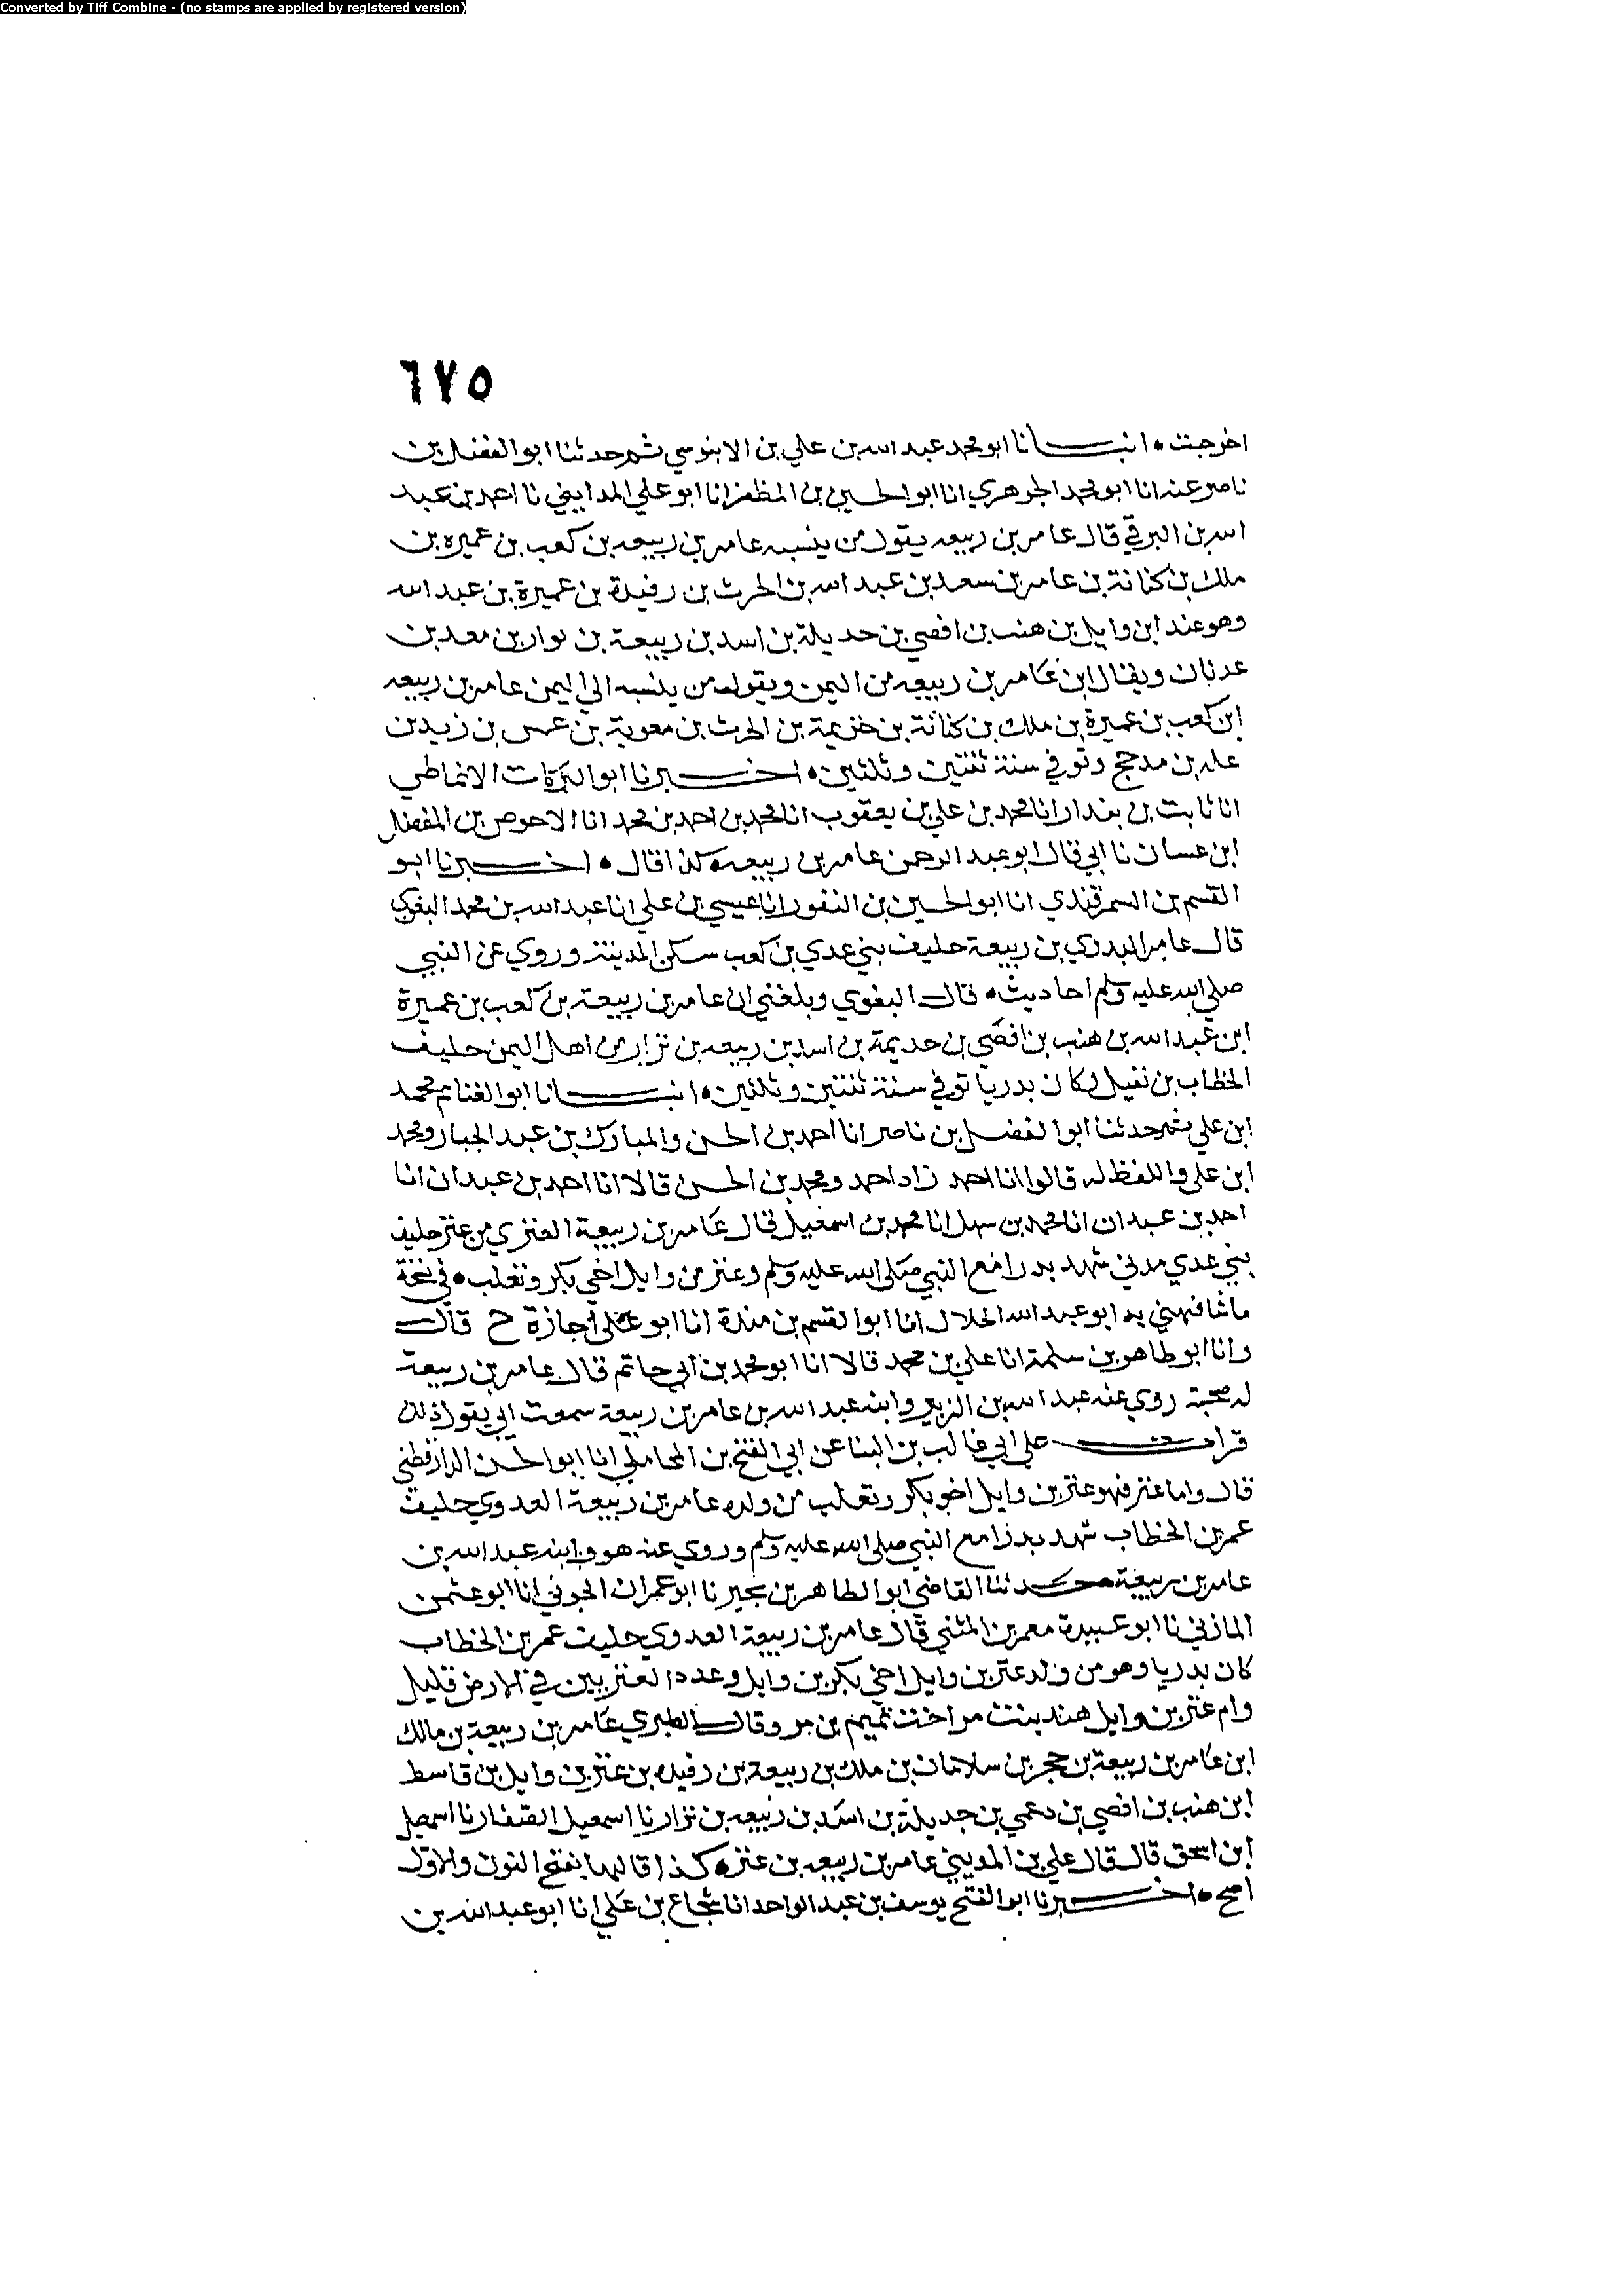 Converted by Tiff Combine - (no stamps are applied by registered version)
٦٧٥
اخرجت • انبـــانا ابو محمد عبد الله بن علي بن الابنوسي ثم حدثنا ابو الفضل بن
ناصر عنه انا ابو محمد الجوهري انا ابو الحسين بن المظفر انا ابو علي المدايني نا احمد بن عبد
الله بن البرقي قال عامر بن ربيعه يقول من ينسبه عامر بن ربيعه بن كعب بن عميره بن
ملك بن كنانة بن عامر بن سعد بن عبد الله بن الحرث بن رفيدة بن عميرة بن عبد الله
وهو عند ابن وايل بن هنب بن افصي بن حديلة بن اسد بن ربيعة بن نوار بن معد بن
عدنان ويقال ابن عامر بن ربيعه من اليمن ويقول من ينسبه الي اليمن عامر بن ربيعه
ابن كعب بن عميرة بن ملك بن كنانة بن خزيمة بن الحرث بن معوية بن عس بن زيد بن
عله بن مدحج وتوفي سنة ثنتين وثلثين • اخـــبرنا ابو البركات الانماطي
انا ثابت بن بندار انا محمد بن علي بن يعقوب انا محمد بن احمد بن محمد انا الاحوص بن المفضل
ابن غسان نا ابي قال ابو عبد الرحمن عامر بن ربيعه كذا قال • اخـــبرنا ابو
القسم بن السمرقندي انا ابو الحسين بن النقور انا عيسي بن علي انا عبد الله بن محمد البغوي
قال عامر البدري بن ربيعة حليف بني عدي بن كعب سكن المدينة وروي عن النبي
صلي الله عليه وسلم احاديث • قال البغوي وبلغني ان عامر بن ربيعة بن كعب بن عميرة
ابن عبد الله بن هنب بن افصي بن حديمة بن اسد بن ربيعه بن نزار من اهل اليمن حليف
الخطاب بن نفيل وكان بدريا توفي سنة ثنتين وثلثين • انبـــانا ابو الغنايم محمد
ابن علي ثم حدثنا ابو الفضل بن ناصر انا احمد بن الحسن والمبارك بن عبد الجبار ومحمد
ابن علي واللفظ له قالوا انا احمد زاد احمد ومحمد بن الحسن قالا انا احمد بن عبدان انا
احمد بن عبدان انا محمد بن سهل انا محمد بن اسمعيل قال عامر بن ربيعة العنزي من عنز حليف
بني عدي مدني شهد بدرا مع النبي صلي الله عليه وسلم وعنز من وايل اخي بكر وتغلب • في نسخة
ما شافهني به ابو عبد الله الخلال انا ابو القسم بن مندة انا ابو علي اجازة ح قال
وانا ابو طاهر بن سلمة انا علي بن محمد قالا انا ابو محمد بن ابي حاتم قال عامر بن ربيعة
له صحبة روي عنه عبد الله بن الزبير وابنه عبد الله بن عامر بن ربيعة سمعت ابي يقول ذلك
قرات علي ابي غالب بن البنا عن ابي الفتح بن المحاملي انا ابو الحسن الدارقطني
قال واما عنز فهو عنز بن وايل اخو بكر وتغلب من ولده عامر بن ربيعة العدوي حليف
عمر بن الخطاب شهد بدرا مع النبي صلي الله عليه وسلم وروي عنه هو وابنه عبد الله بن
عامر بن ربيعة حـــدثنا القاضي ابو الطاهر بن بجير نا ابو عمران الجوني انا ابو عثمن
المازني نا ابو عبيدة معمر بن المثني قال عامر بن ربيعة العدوي حليف عمر بن الخطاب
كان بدريا وهو من ولد عنز بن وايل اخي بكر بن وايل وعدد العنزيين في الارض قليل
وام عنز بن وايل هند بنت مر اخت تميم بن مر وقال الطبري عامر بن ربيعة بن مالك
ابن عامر بن ربيعة بن حجر بن سلامان بن ملك بن ربيعة بن رفيده بن عنز بن وايل بن قاسط
ابن هنب بن افصي بن دعمي بن جديلة بن اسد بن ربيعه بن نزار نا اسمعيل الصفار نا اسمعيل
ابن اسحق قال قال علي بن المديني عامر بن ربيعه بن عنز • كذا قالها بفتح النون والاول
اصح • اخـــبرنا ابو الفتح يوسف بن عبد الواحد انا شجاع بن علي انا ابو عبد الله بن